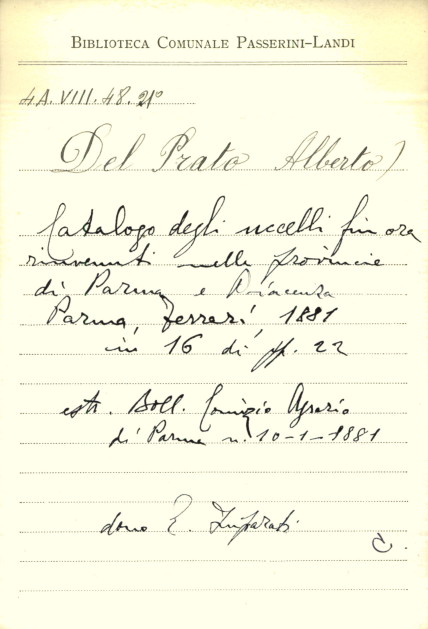 BIBLIOTECA COMUNALE PASSERINI-LANDI
4A.VIII.48.21º
Del Prato Alberto)
Catalogo degli uccelli fin ora
rinvenuti nelle provincie
di Parma e Piacenza
Parma, Ferrari, 1881
in 16 di pp. 22
estr. Boll. Comizio Agrario
di Parma n. 10-1-1881
dono E. Imparati
C.